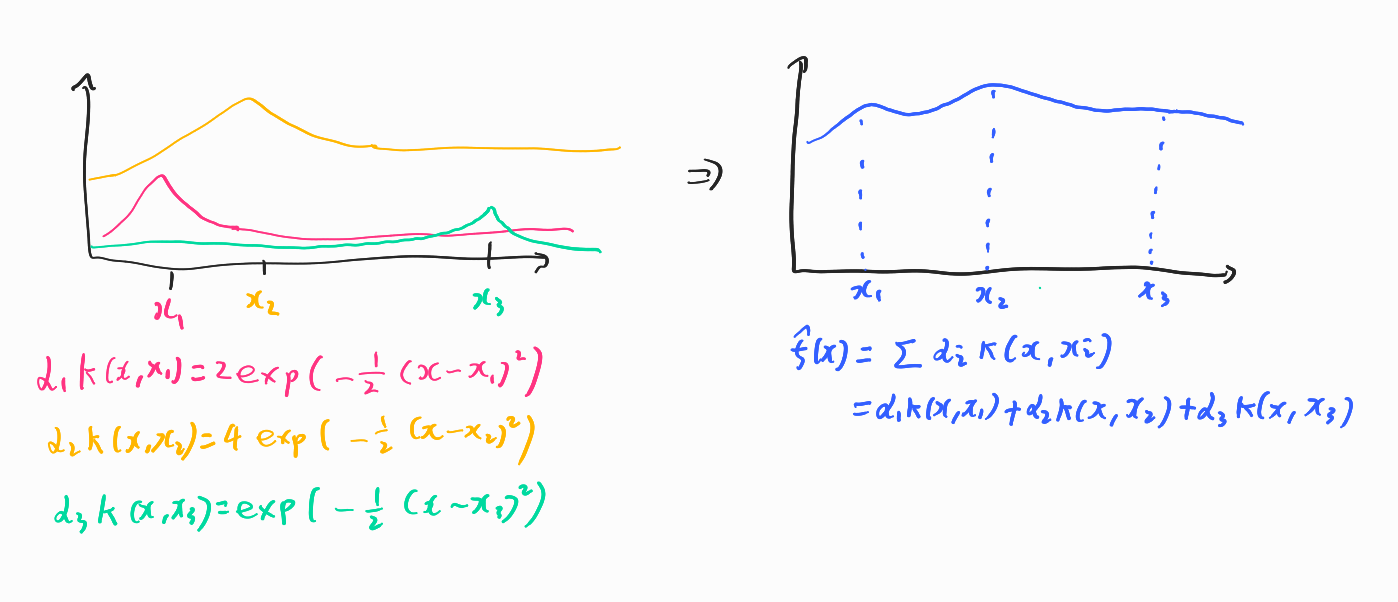 x₁ x₂ x₃
α₁ k(x,x₁) = 2 exp(-½ (x-x₁)²)
α₂ k(x,x₂) = 4 exp(-½ (x-x₂)²)
α₃ k(x,x₃) = exp(-½ (x-x₃)²)
⇒
x₁ x₂ x₃
f̂(x) = ∑ αᵢ k(x,xᵢ)
= α₁k(x,x₁)+α₂k(x,x₂)+α₃k(x,x₃)